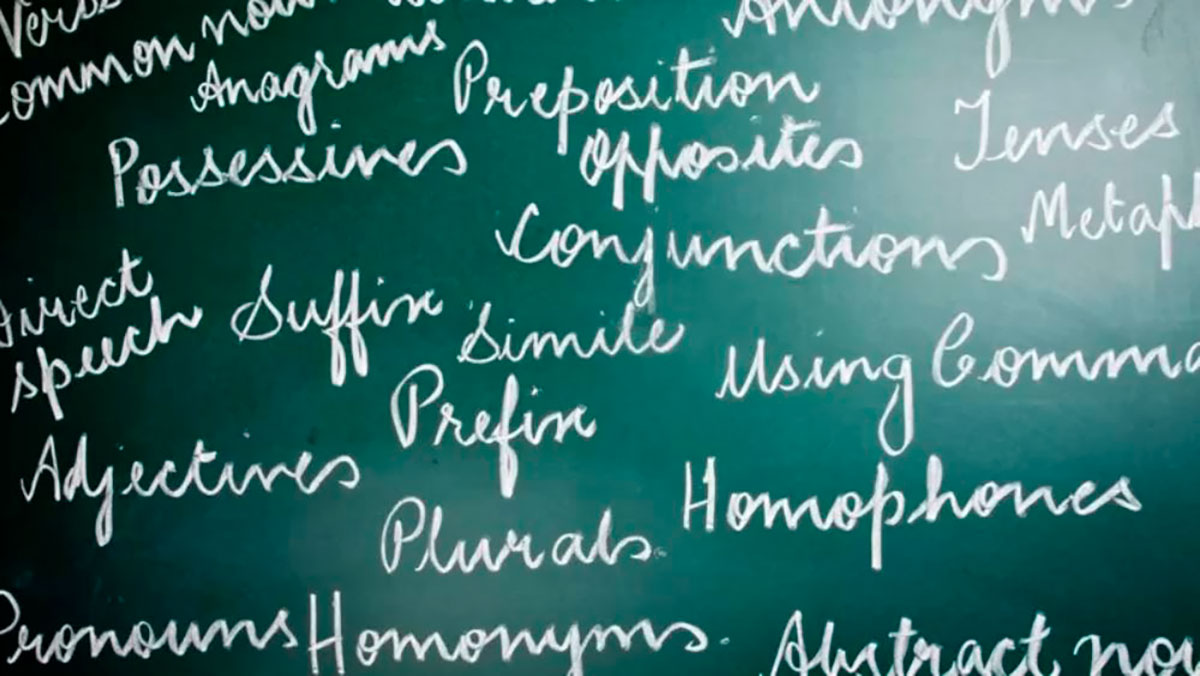 Verbs
Common noun
Antonyms
Anagrams
Preposition
Possessives
Opposites
Tenses
Conjunctions
Metaph
Direct
speech
Suffix
Simile
Using Comma
Prefix
Adjectives
Homophones
Plurals
Pronouns
Homonyms
Abstract nou